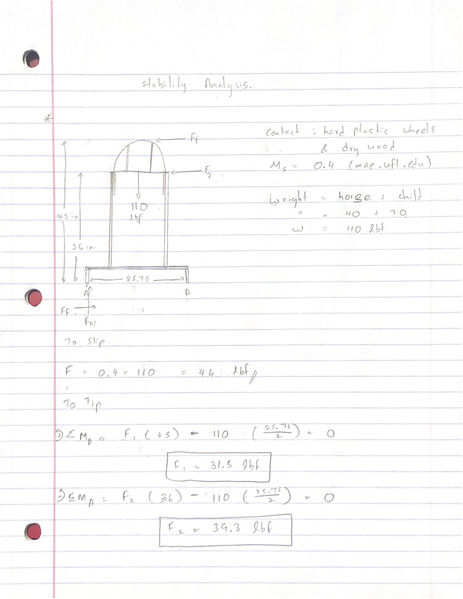 Stability Analysis.
F1
F2
110
lbf
45 in
36 in
25.75
A
B
FF
FN
contact : hard plastic wheels
& dry wood
Ms = 0.4 (mae.ufl.edu)
Weight = horse + child
" = 40 + 70
W = 110 lbf
To Slip
F = 0.4 × 110 = 44 lbf
To Tip
1) ΣMA = F1 (45) - 110 (25.75/2) = 0
F1 = 31.5 lbf
2) ΣMA = F2 (36) - 110 (25.75/2) = 0
F2 = 39.3 lbf